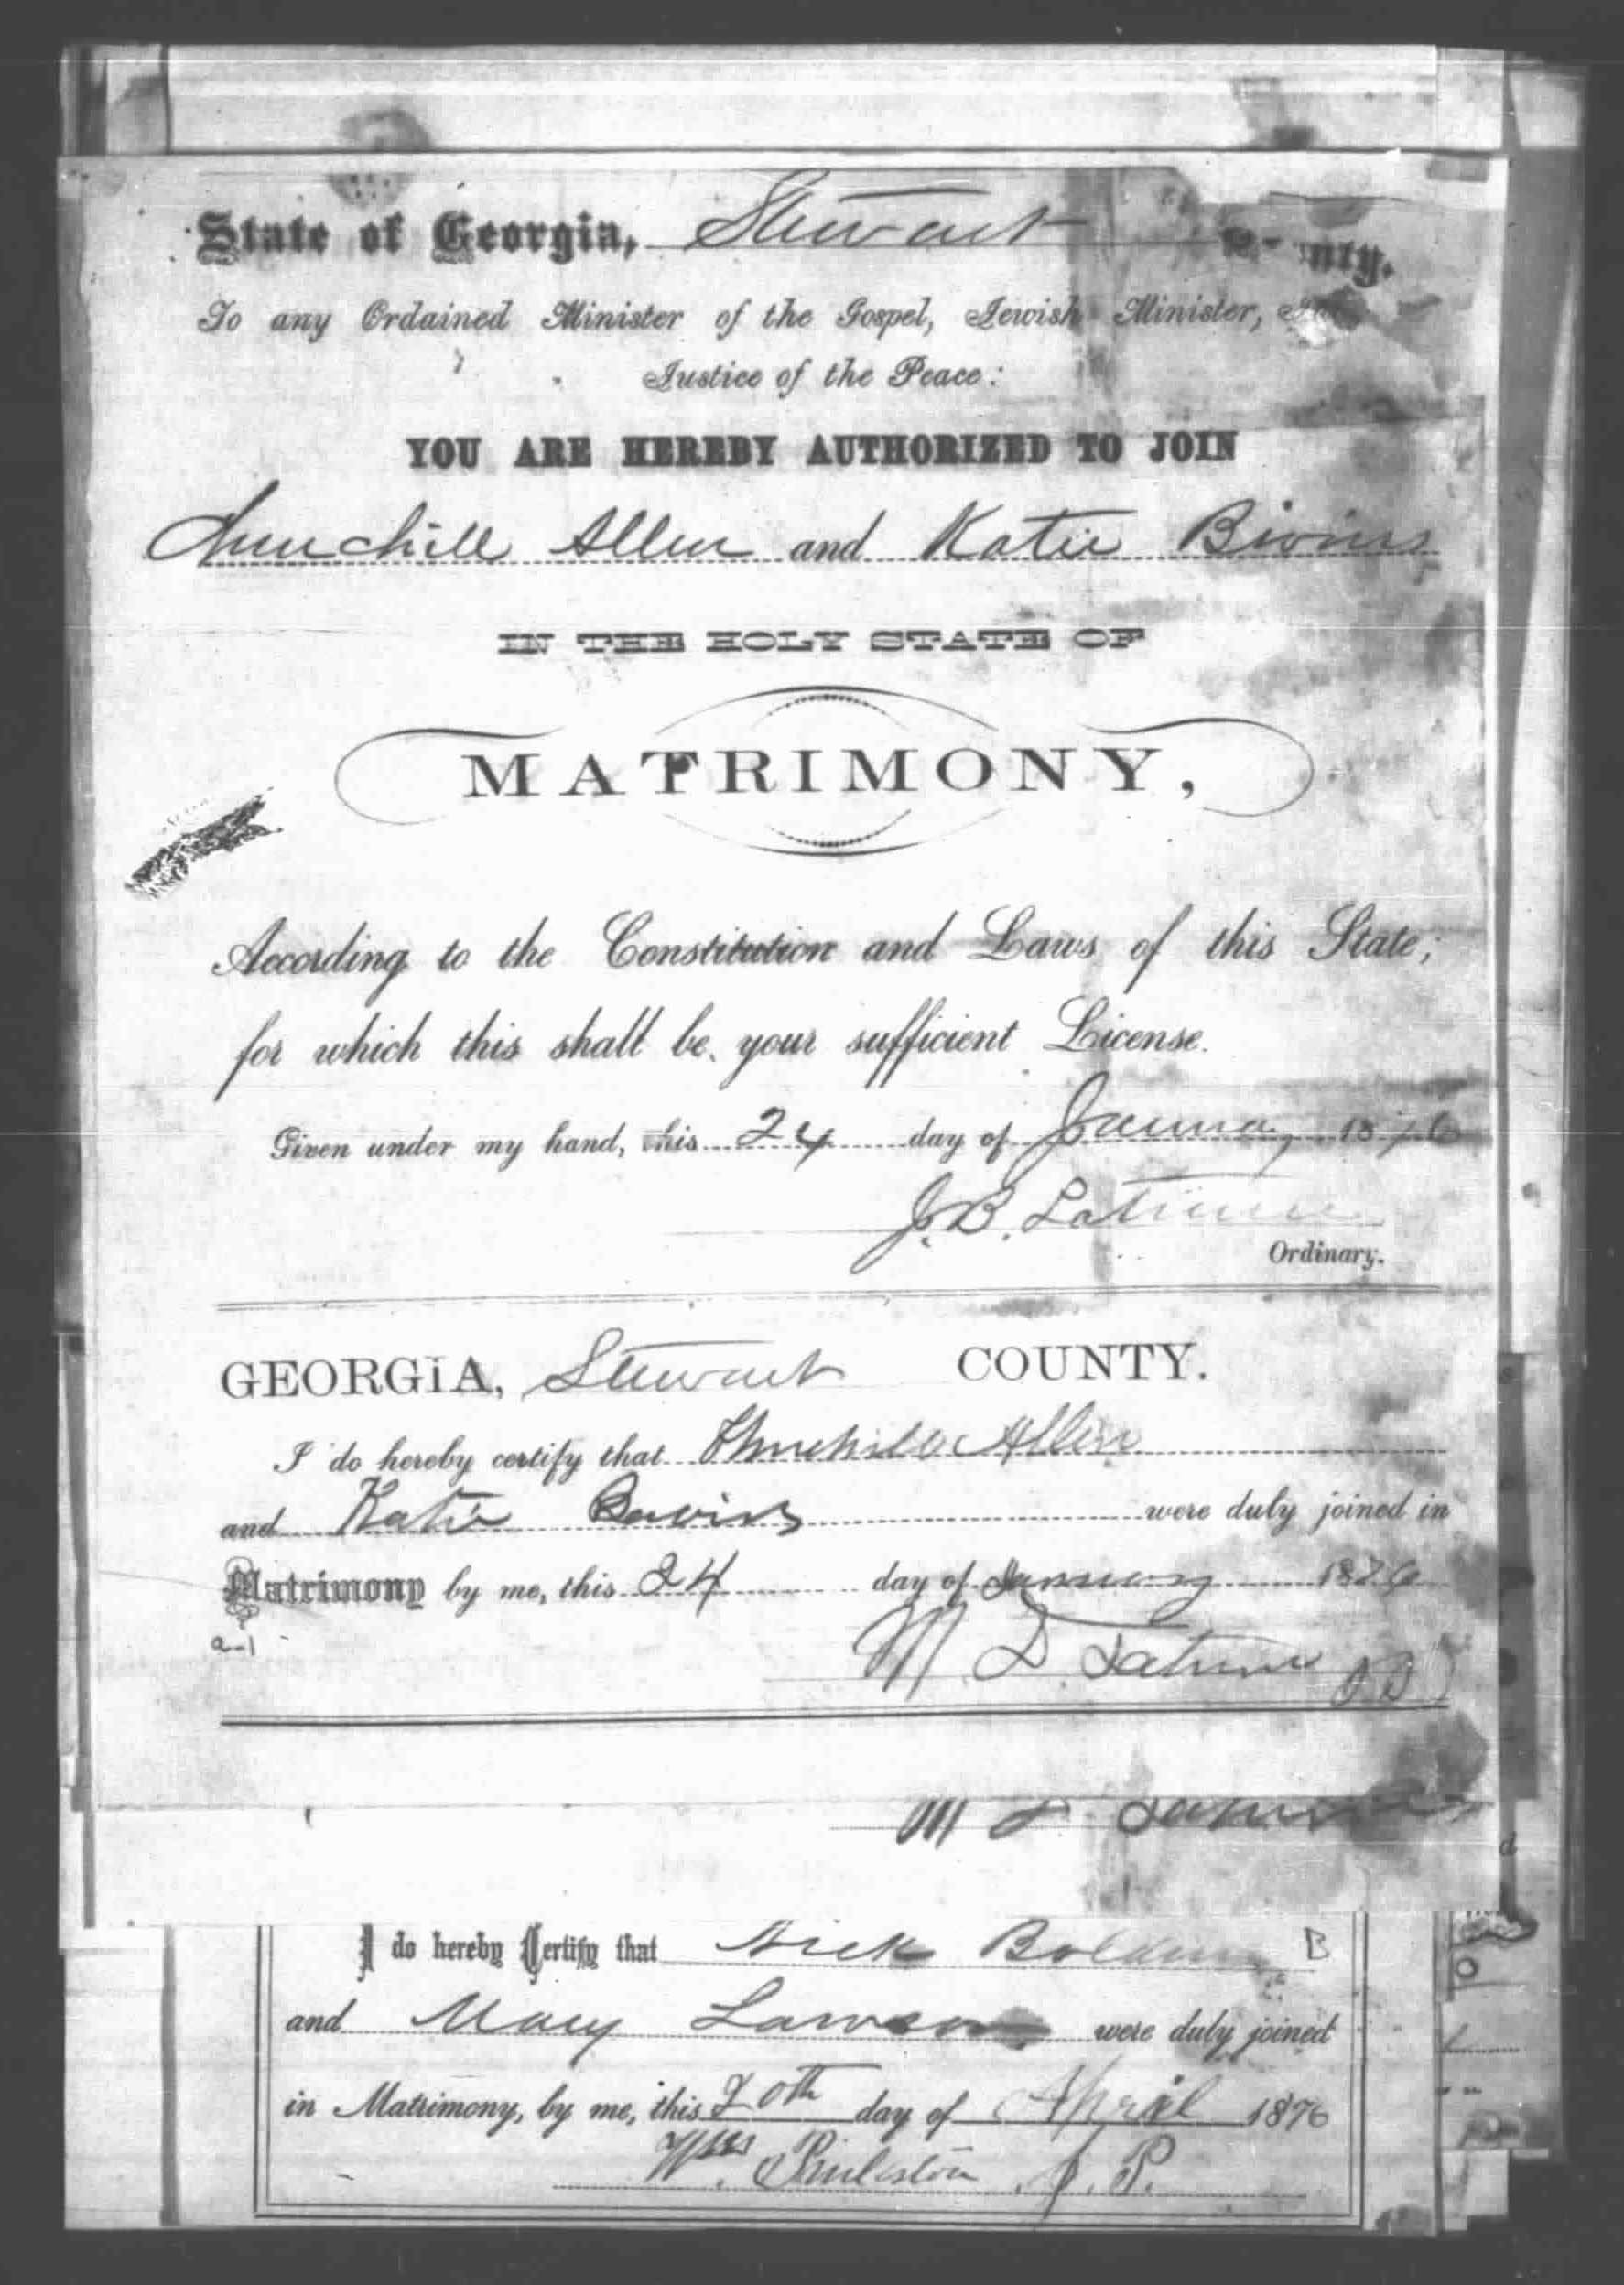 State of Georgia, Stewart County.
To any Ordained Minister of the Gospel, Jewish Minister,
Justice of the Peace:
YOU ARE HEREBY AUTHORIZED TO JOIN
Churchill Allen and Katie Bivins
IN THE HOLY STATE OF
MATRIMONY,
According to the Constitution and Laws of this State;
for which this shall be your sufficient License.
Given under my hand, this 24 day of January 1876
J. B. Latimer
Ordinary.
GEORGIA, Stewart COUNTY.
I do hereby certify that Churchill Allen
and Katie Bivins were duly joined in
Matrimony by me, this 24 day of January 1876
a-1
M D Latimer
M D Latimer
I do hereby Certify that Dick B
and Mary Lawson were duly joined
in Matrimony, by me, this 20th day of April 1876
Wm. Pinkston J. P.